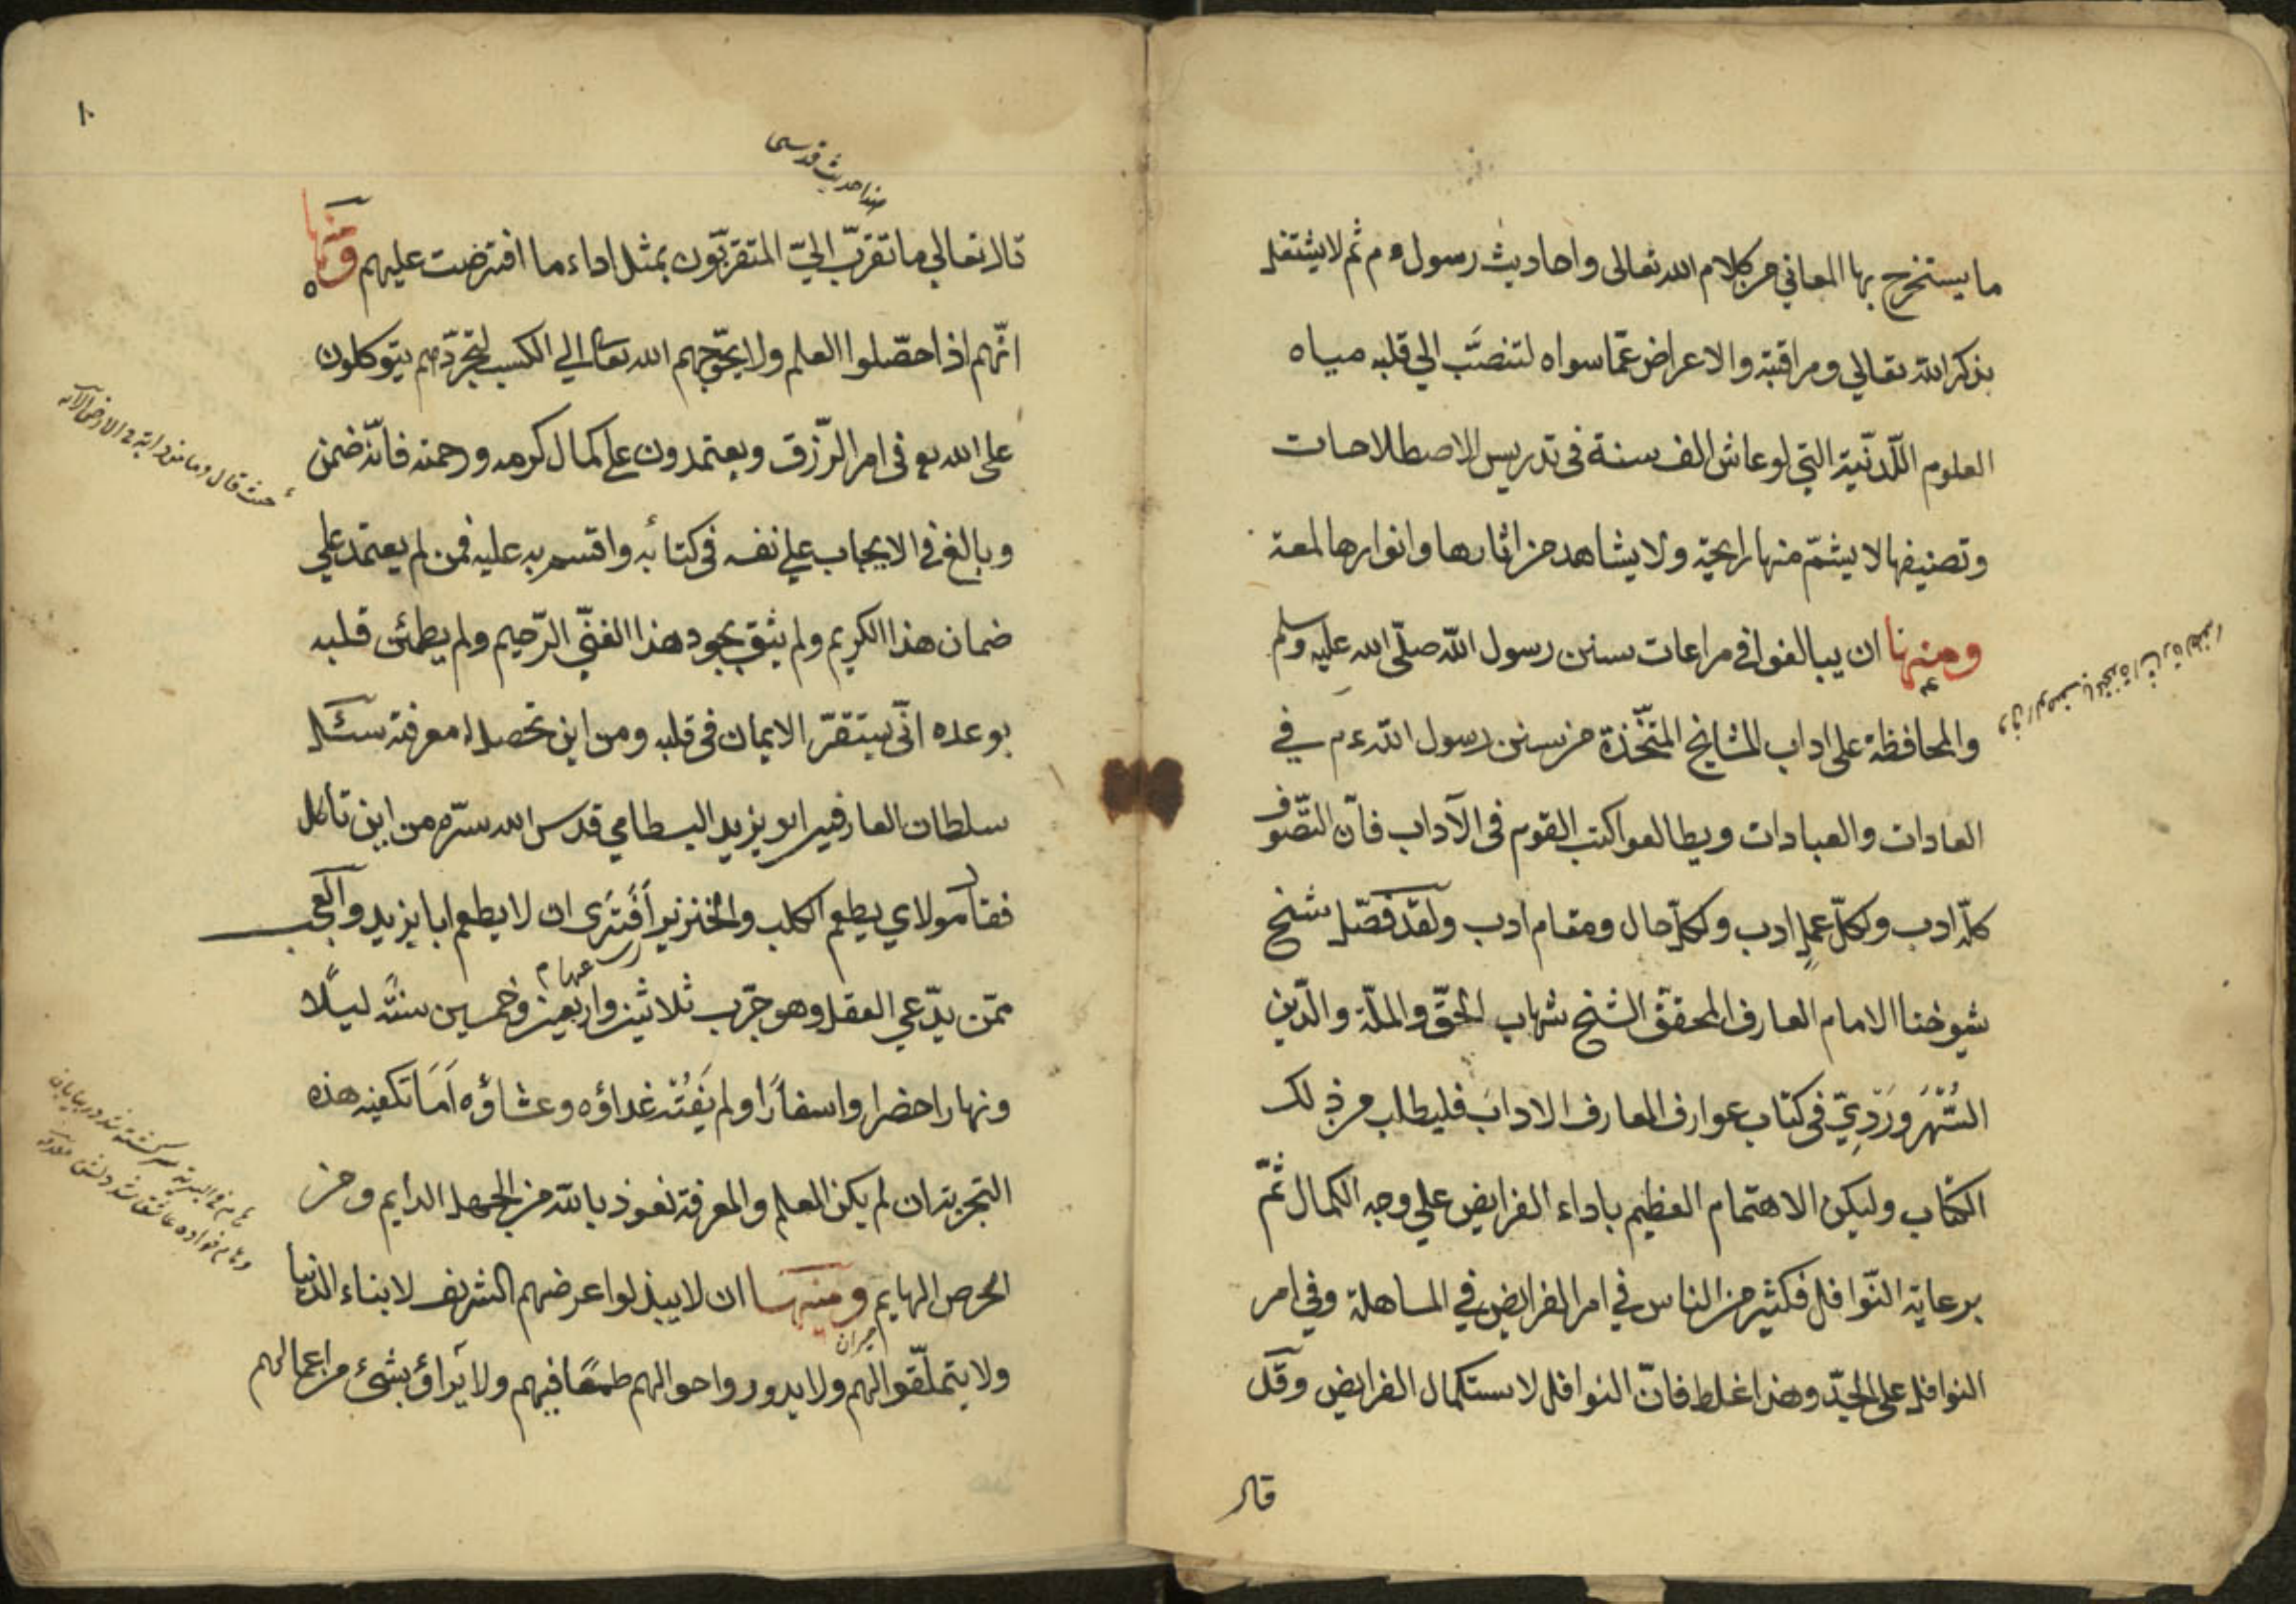 ما يستخرج بها المعاني من كلام الله تعالى واحاديث رسول ءم ثم لا يشتغل
بذكر الله تعالي ومراقبته والاعراض عمّا سواه لتنصبّ الي قلبه مياه
العلوم اللّدنّية التي لو عاش الف سنة في تدريس الاصطلاحات
وتصنيفها لا يشمّ منها رايحة ولا يشاهد من اثارها وانوارها لمعة
ومنها ان يبالغوا في مراعات سنن رسول الله صلّى الله عليه وسلم
والمحافظة على اداب المشايخ المتّخذة من سنن رسول الله ءم في
العادات والعبادات ويطالعوا كتب القوم في الآداب فانّ التّصوّف
كلّه ادب ولكلّ عملٍ ادب ولكلّ حال ومقام ادب ولقد فصّل شيخ
شيوخنا الامام العارف المحقّق الشيخ شهاب الحقّ والملّة والدّين
السُّهْرَوَرْدِيّ في كتاب عوارف المعارف الادابَ فليطلب من ذلك
الكتاب وليكن الاهتمام العظيم باداء الفرايض علي وجه الكمال ثمّ
برعاية النّوافل فكثير من الناس في امر الفرايض في المساهلة وفي امر
النوافل على الجدّ وهذا غلط فانّ النوافل لاستكمال الفرايض وقَل
قال
١٠
هذا حديث قدسى
قال تعالي ما تقرّب اليّ المتقربّون بمثل اداء ما افترضت عليهم ومنها
انّهم اذا حصّلوا العلم ولا يحوّجهم الله تعالى الي الكسب لتجرّدهم يتوكلون
على الله تع في امر الرّزق ويعتمدون على كمال كرمه ورحمته فانّه ضمن
حيث قال وما من دابة في الارض الآية
وبالغ في الايجاب علي نفسه في كتابه واقسم به عليه فمن لم يعتمد علي
ضمان هذا الكريم ولم يثق بجود هذا الغنيّ الرّحيم ولم يطمئن قلبه
بوعده انّى يستقرّ الايمان في قلبه ومن اين تحصل له معرفته سئل
سلطان العارفين ابو يزيد البسطامي قدس الله سرّه من اين تأكل
فقال مولاي يطعم الكلب والخنزير أَفَتَرى ان لا يطعم ابا يزيد والعجب
ممّن يدّعي العقل وهو جرّب ثلاثين واربعين وخمسين سنة ليلًا
ونهارا حضرا واسفارًا ولم يَفُتْه غداؤه وعشاؤه اَمَا تكفيه هذه
التجربة ان لم يكن العلم والمعرفة نعوذ بالله من الجهل الدايم ومن
الحرص الهايم ومنها ان لا يبذلوا عرضهم الشريف لابناء الدّنيا
ولا يتملّقوا لهم ولا يدوروا حوالهم طمعًا فيهم ولا يراؤا بشئ من اعمالهم